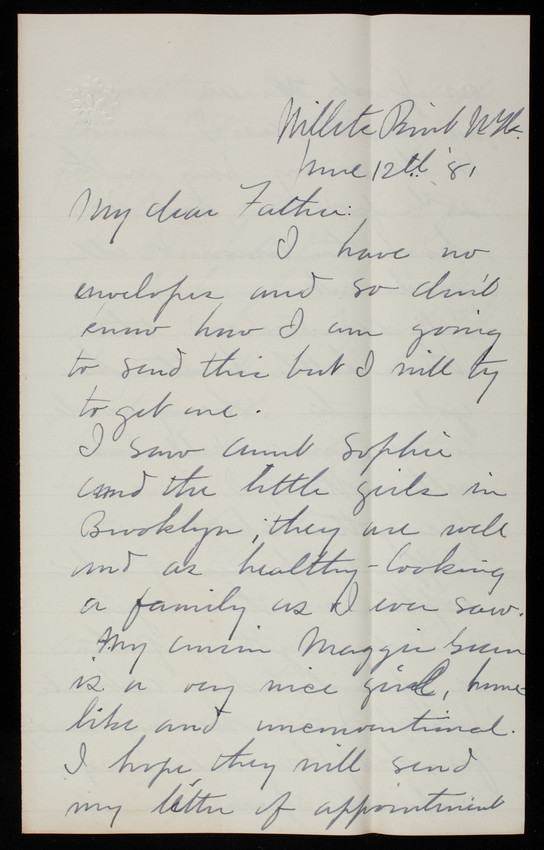 Willets Point N.Yk.
June 12th '81
My dear Father:
I have no
envelopes and so don't
know how I am going
to send this but I will try
to get one.
I saw Aunt Sophie
and the little girls in
Brooklyn; they are well
and as healthy-looking
a family as I ever saw.
My cousin Maggie
is a very nice girl, home-
like and unconventional.
I hope they will send
my letter of appointment